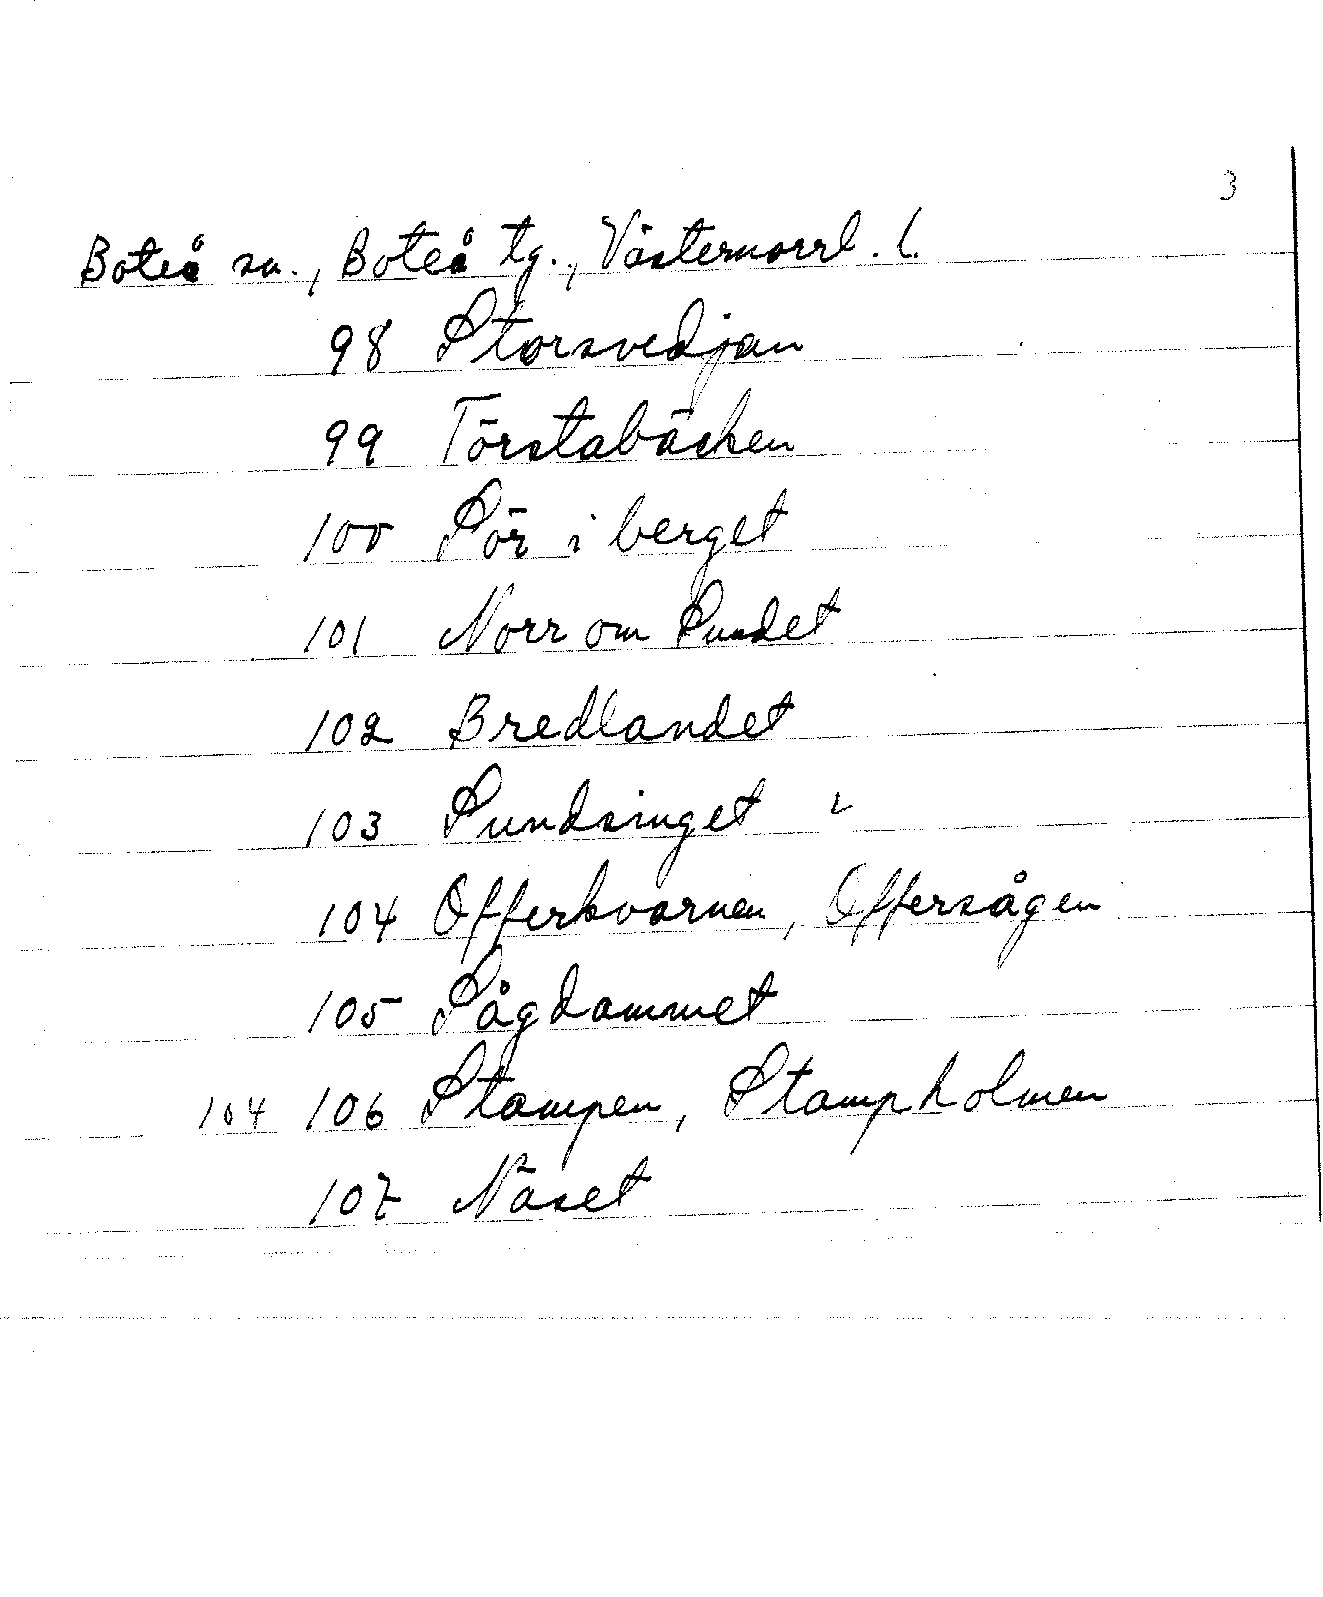 3
Boteå sn., Boteå tg., Västernorrl. l.
98 Storsvedjan
99 Törstabäcken
100 Sör i berget
101 Norr om Sundet
102 Bredlandet
103 Sundsinget
104 Offerkvarnen, Offersågen
105 Sågdammet
104 106 Stampen, Stampholmen
107 Näset